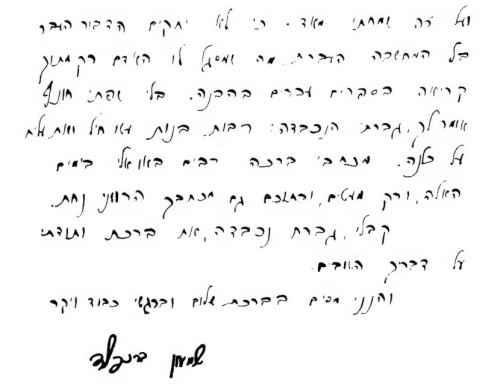 ועל זה שמחתי מאד. הן לא יתקים הדבור העברי
בלי המחשבה העברית מה שמסגל לו האדם רק מתוך
קריאה בספרים עברים בהבנה. בלי שפתי חונף
אומר לך, גברתי הנכבדה: רבות בנות עשו חיל ואת עלית
על כלנה. מכתבי ברכה רבים באו אלי בימים
האלה, ורק מעטים, ובתוכם גם מכתבך הרווני נחת.
קבלי, גברת נכבדה, את ברכתי ותודתי
על דבריך הטובים.
והנני מסים בברכת שלום וברגשי כבוד ויקר
שמעון ברנפלד